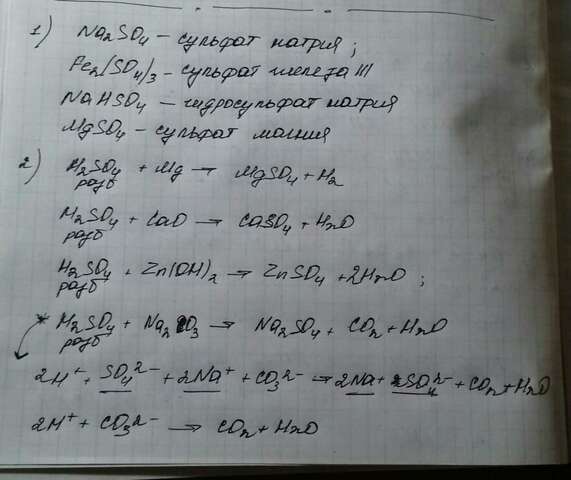 1) Na₂SO₄ – сульфат натрия ;
Fe₂(SO₄)₃ – сульфат железа III
NaHSO₄ – гидросульфат натрия
MgSO₄ – сульфат магния
2) H₂SO₄ + Mg → MgSO₄ + H₂
разб
H₂SO₄ + CaO → CaSO₄ + H₂O
разб
H₂SO₄ + Zn(OH)₂ → ZnSO₄ + 2H₂O ;
разб
* H₂SO₄ + Na₂CO₃ → Na₂SO₄ + CO₂ + H₂O
разб
2H⁺ + SO₄²⁻ + 2Na⁺ + CO₃²⁻ → 2Na⁺ + SO₄²⁻ + CO₂ + H₂O
2H⁺ + CO₃²⁻ → CO₂ + H₂O